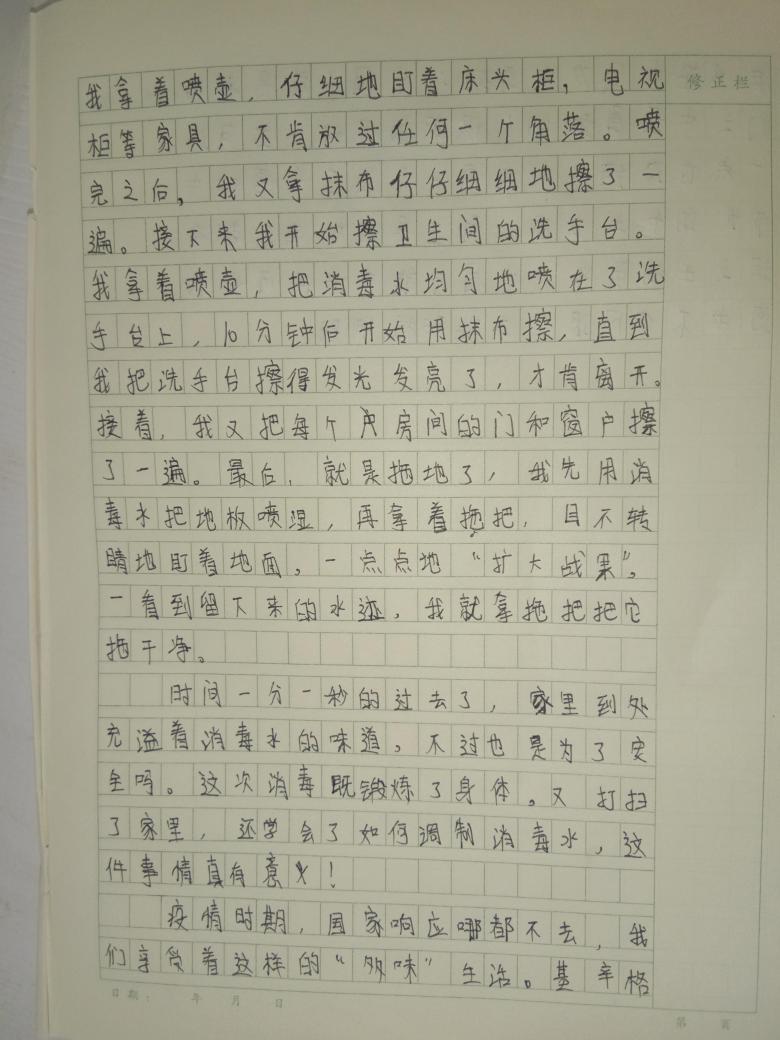 我拿着喷壶，仔细地盯着床头柜，电视
修正栏
柜等家具，不肯放过任何一个角落。喷
完之后，我又拿抹布仔仔细细地擦了一
遍。接下来我开始擦卫生间的洗手台。
我拿着喷壶，把消毒水均匀地喷在了洗
手台上，10分钟后开始用抹布擦，直到
我把洗手台擦得发光发亮了，才肯离开。
接着，我又把每个户房间的门和窗户擦
了一遍。最后，就是拖地了，我先用消
毒水把地板喷湿，再拿着拖把，目不转
睛地盯着地面，一点点地“扩大战果”。
一看到留下来的水迹，我就拿拖把把它
拖干净。
时间一分一秒的过去了，家里到处
充溢着消毒水的味道，不过也是为了安
全吗。这次消毒既锻炼了身体。又打扫
了家里，还学会了如何调制消毒水，这
件事情真有意义！
疫情时期，国家响应哪都不去，我
们享受着这样的“多味”生活。基辛格
日期： 年 月 日
第 页